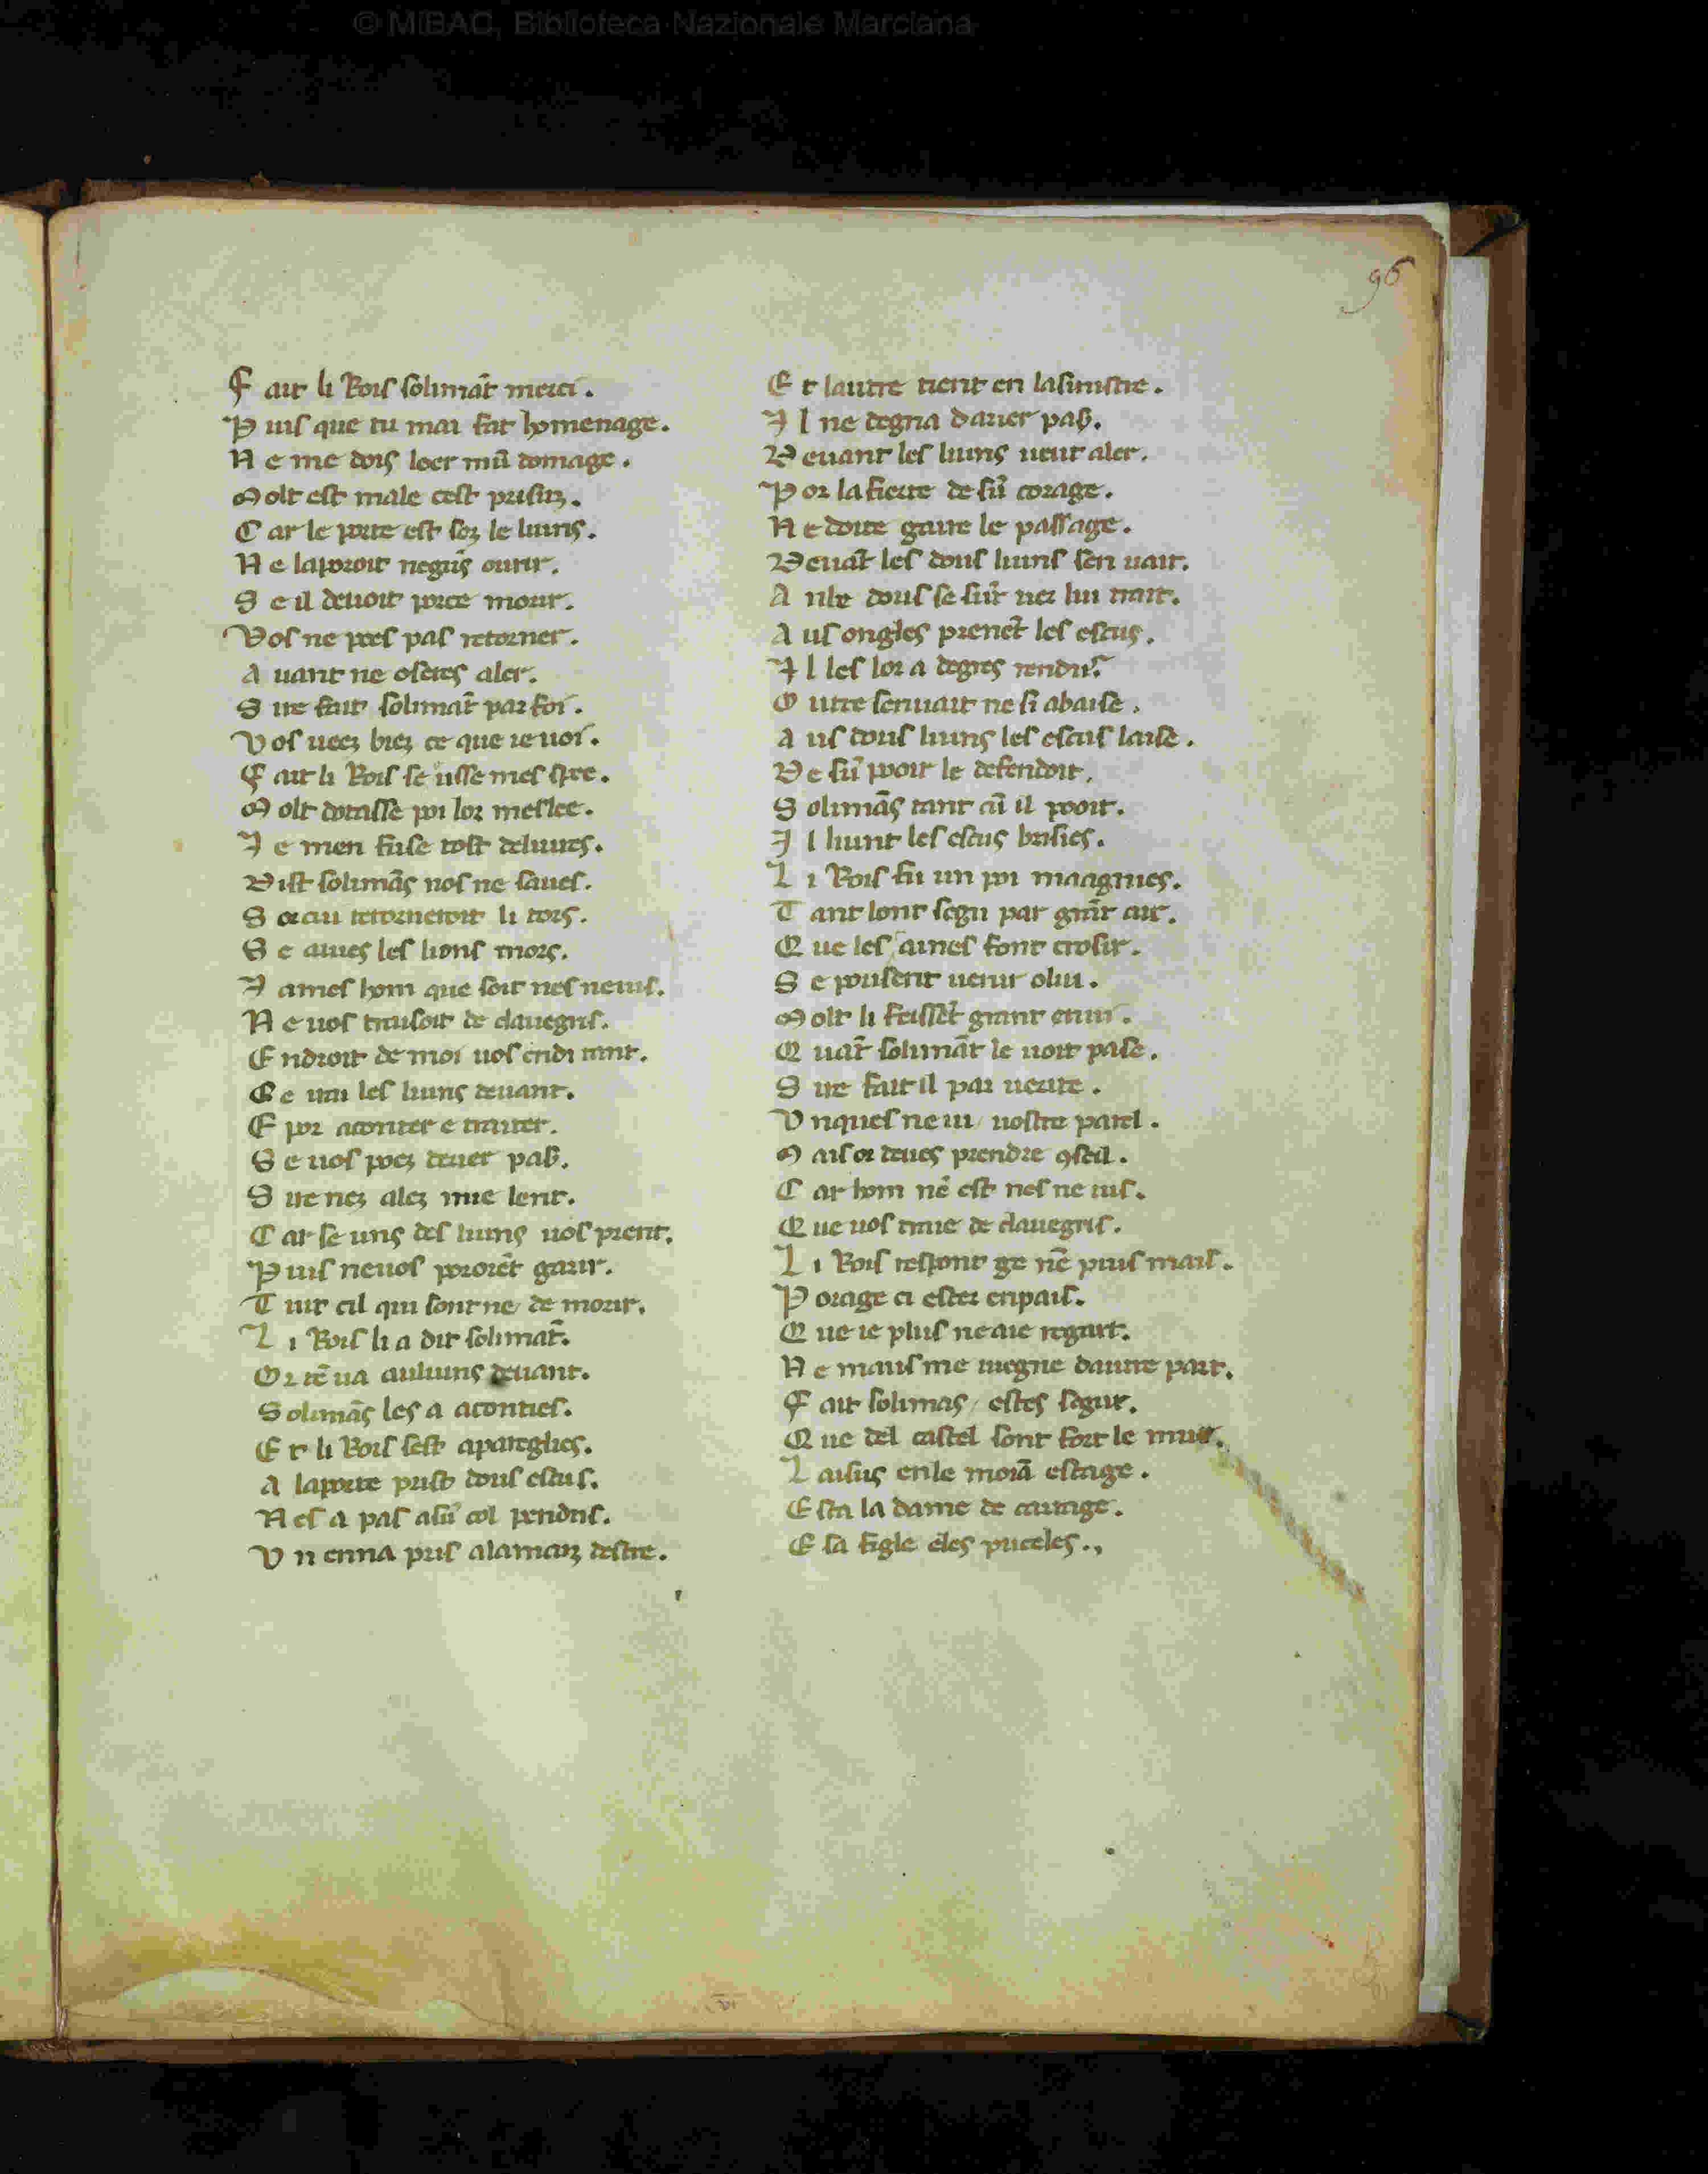 © MiBAC, Biblioteca Nazionale Marciana
96
F ait li Rois solimãt merci.
P uis que tu mai fat homenage.
N e me dois loer mũ domage.
M olt est male cest prisuz.
C ar le porte est soz le liuns.
N e laporoit negũs ourir.
S e il deuoit porce morir.
V os ne poes pas retorner.
A uant ne oseres aler.
S ire fait solimãt par foi.
V os ueez biez ce que ie uoi.
F ait li Rois se usse mes spee.
M olt dotasse poi lor meslee.
I e men fuse tost deliures.
D ist solimãs nos ne saues.
S orciu retorneroit li tors.
S e auies les lions mors.
I ames hom que soit nes neuis.
N e uos trausoit de clauegris.
E ndroit de moi uos endi tant.
G e irai les liuns deuant.
E por acointer e traiter.
S e uos poez deuer paß.
S ire nez alez mie lent.
C ar se uns des liuns uos prent.
P uis neuos pororẽt garir.
T uit cil qui sont ne de morir.
L i Rois li a dit solimãt.
O r tẽ ua auliuns deuant.
S olimãs les a acointies.
E t li Rois sest apareglies.
A laporte prist dous escus.
N es a pas asũ col pendus.
V n enna pris alamanz destre.
E t lautre tient en lasinistre.
I l ne degna dauer paß.
D euant les liuns ueut aler.
P or la fierte de sũ corage.
N e doite gaire le passage.
D euãt les dous liuns sen uait.
A nbe dous se sũt uer lui trait.
A us ongles prenẽt les escus.
I l les lor a degres rendus
O utre senuait ne si abaise.
A us dous liuns les escus laise.
D e sũ pooir le defendoit.
S olimãs tant cũ il pooit.
I l liunt les escus brisies.
L i Rois fu un poi maagnies.
T ant lont segu par grãt air.
Q ue les armes font crosir.
S e pouisent uenir olui.
M olt li feissẽt grant enui.
Q uãt solimãt le uoit pase.
S ire fait il par uerite.
V nques ne ui uostre parel.
M ais or deues prendre ꝯseil.
C ar hom nẽ est nes ne uis.
Q ue uos traie de clauegris.
L i Rois respont ge nẽ puis mais.
P orage ci ester enpais.
Q ue ie plus ne aie regart.
N e mausme uiegne dautre part.
F ait solimas estes segur.
Q ue del castel sont fort le mur.
L aisus enle moiã estage.
E sta la dame de cartage.
E sa figle eles puceles.,